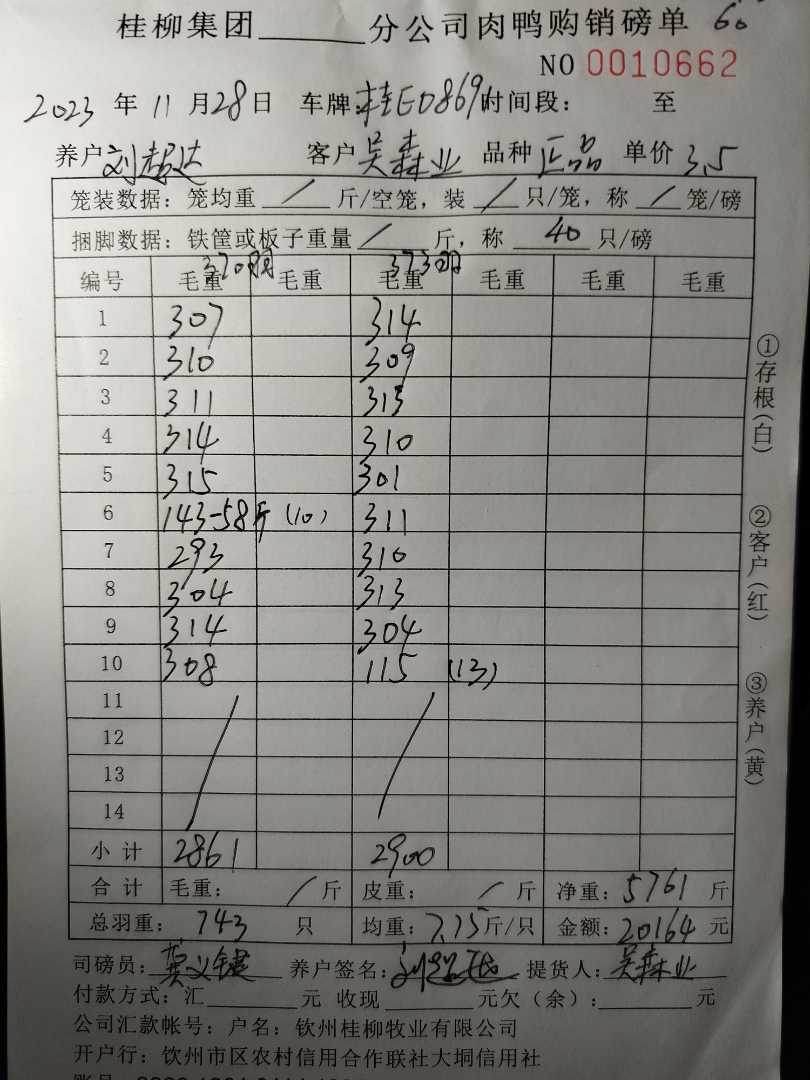 桂柳集团______分公司肉鸭购销磅单
NO 0010662
2023 年 11 月 28 日 车牌:桂E0869 时间段: 至
养户 刘超达 客户 吴森业 品种 正品 单价 3.5
笼装数据: 笼均重 / 斤/空笼, 装 / 只/笼, 称 / 笼/磅
捆脚数据: 铁筐或板子重量 / 斤, 称 40 只/磅
370羽 373羽
编号 毛重 毛重 毛重 毛重 毛重 毛重
1 307 314
2 310 309
3 311 313
4 314 310
5 315 301
6 143-58斤 (10) 311
7 293 310
8 304 313
9 314 304
10 308 115 (13)
11
12
13
14
小计 2861 2900
合计 毛重: / 斤 皮重: / 斤 净重: 5761 斤
总羽重: 743 只 均重: 7.75 斤/只 金额: 20164 元
司磅员: 养户签名: 提货人: 吴森业
付款方式: 汇______元 收现______元欠(余):______元
公司汇款帐号: 户名: 钦州桂柳牧业有限公司
开户行: 钦州市区农村信用合作联社大垌信用社
①存根(白)
②客户(红)
③养户(黄)